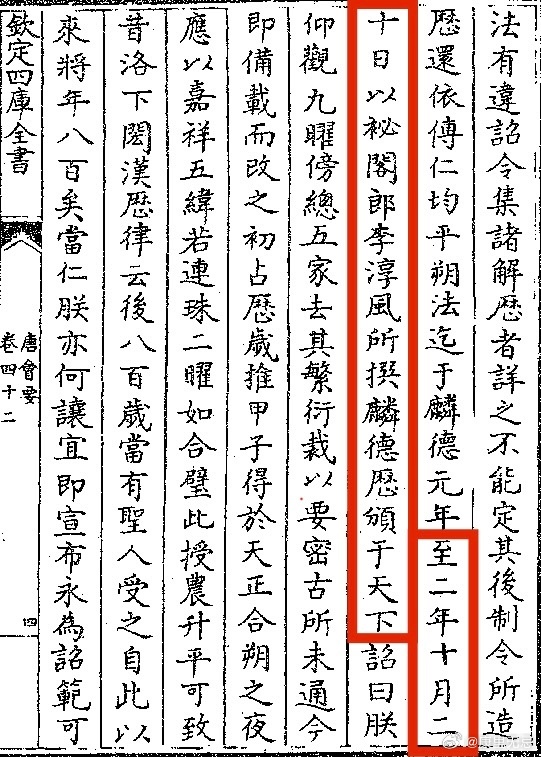 法有違詔令集諸解歴者詳之不能定其後制令所造
歴還依傅仁均平朔法迄于麟德元年至二年十月二
十日以袐閣郎李淳風所撰麟德歴頒于天下詔曰朕
仰觀九曜傍總五家去其繁衍裁以要密古所未通今
即備載而改之初占歴歲推甲子得於天正合朔之夜
應以嘉祥五緯若連珠二曜如合璧此授農升平可致
昔洛下閎漢歴律云後八百歲當有聖人受之自此以
來將年八百矣當仁朕亦何讓宜即宣布永為詔範可
欽定四庫全書
唐會要
卷四十二
四